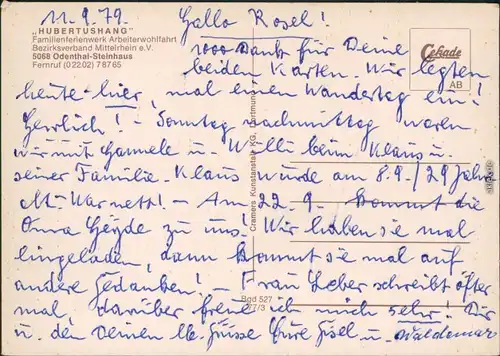 11.9.79.
„HUBERTUSHANG"
Familienferienwerk Arbeiterwohlfahrt
Bezirksverband Mittelrhein e.V.
5068 Odenthal-Steinhaus
Fernruf (02202) 78765
Cekade
AB
Hallo Rosel!
1000 Dank für Deine
beiden Karten. Wir legten
heute hier, mal einen Wandertag ein!
Herrlich! – Sonntag nachmittag waren
wir mit u. Willi beim Klaus u.
seiner Familie. Klaus wurde am 8.9./29 Jahre
War nett! – Am 22.9. kommt die
Oma Heyde zu uns! Wir haben sie mal
eingeladen, dann kommt sie mal auf
andere Gedanken! – Frau schreibt öfter
mal, darüber freue ich mich sehr! Dir
u. den Deinen lb. Grüsse Eure Gisel u. Waldemar
Cramers Kunstanstalt KG, Dortmund
Bgd 527
7/3